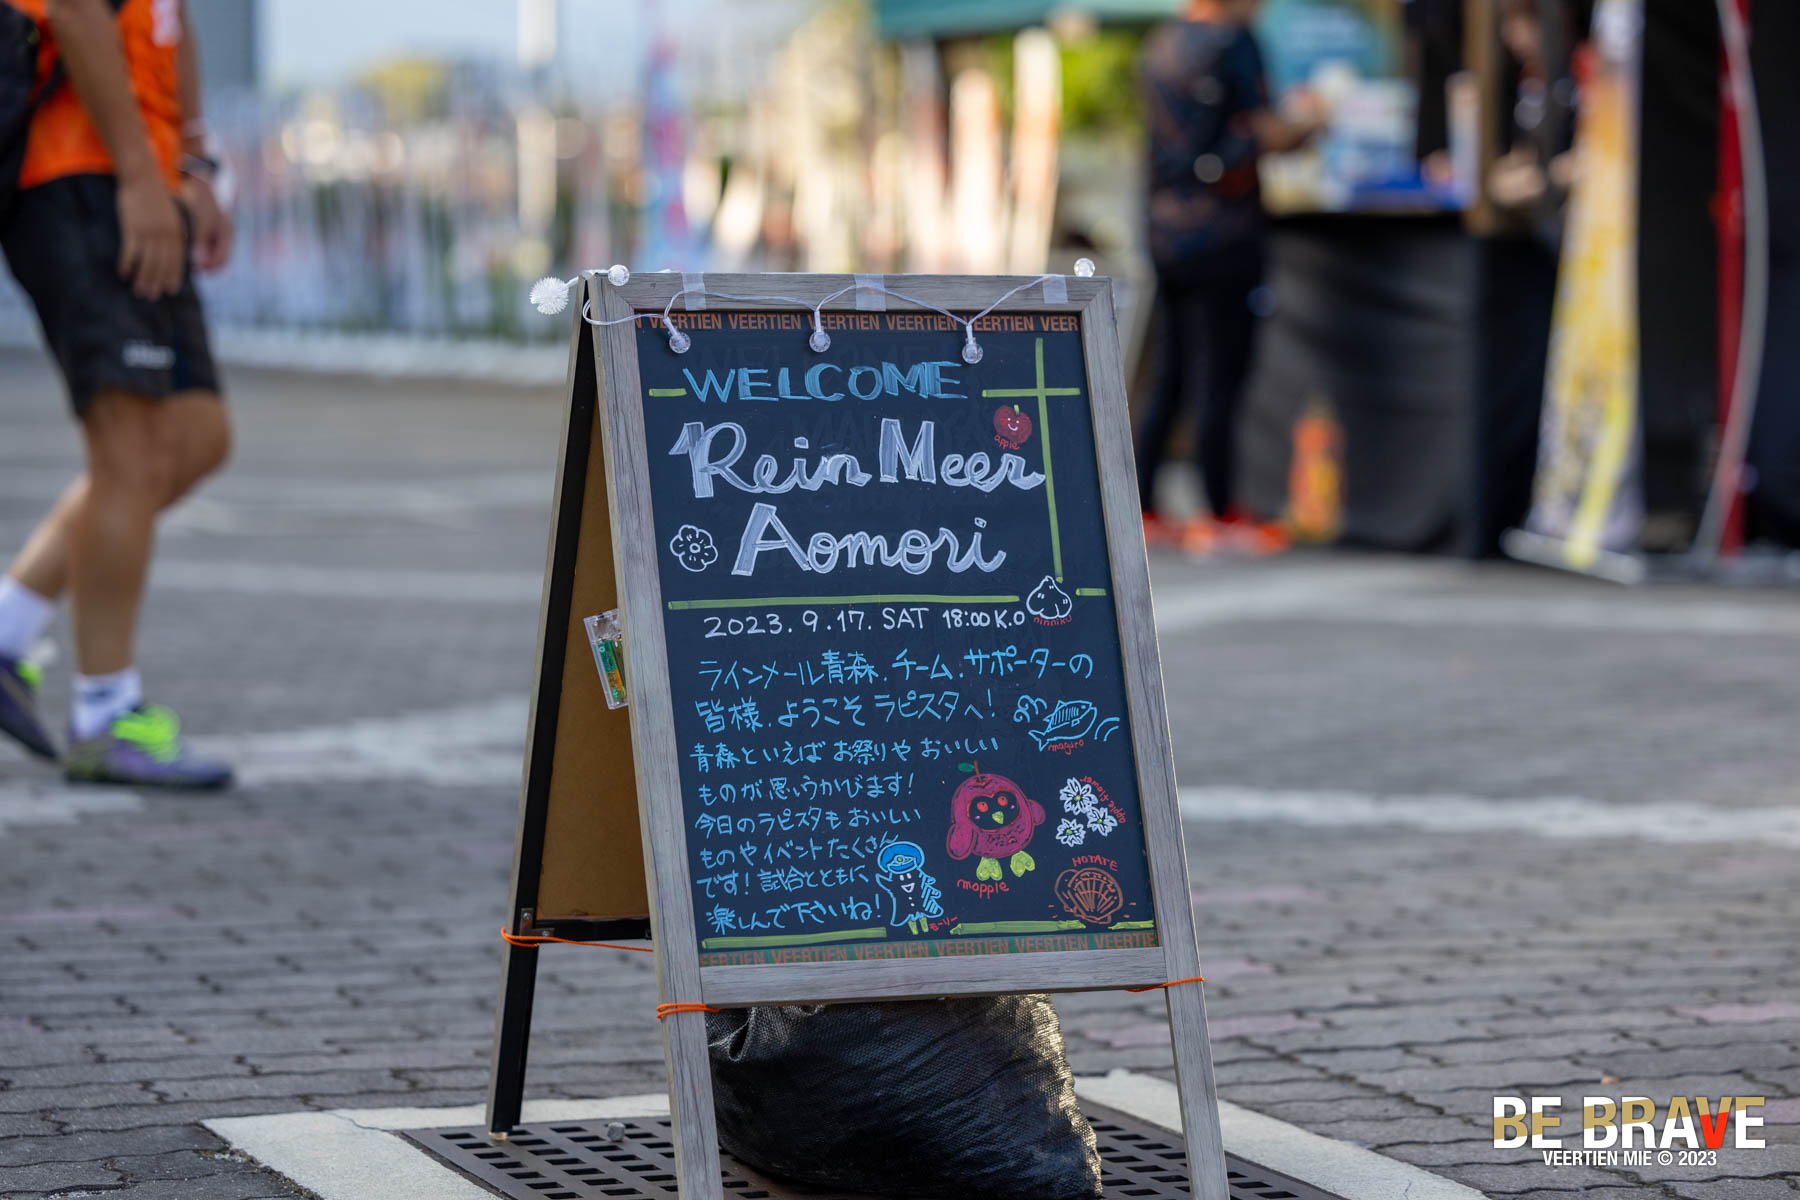 VEERTIEN VEERTIEN EERTIEN VEERTIEN EERTIEN VEER
WELCOME
apple
Rein Meer
Aomori
2023.9.17. SAT 18:00 K.O
ninniku
ラインメール青森.チーム.サポーターの
皆様.ようこそラピスタへ!
maguro
青森といえばお祭りやおいしい
ものが思いうかびます!
今日のラピスタもおいしい
ものやイベントたくさん
です!試合とともに
楽しんで下さいね!
mapple
apple flower
HOTATE
EERTIEN VEERTIEN VEERTIEN VEERTIEN VEERTIEN VEERTIE
BE BRAVE
VEERTIEN MIE © 2023